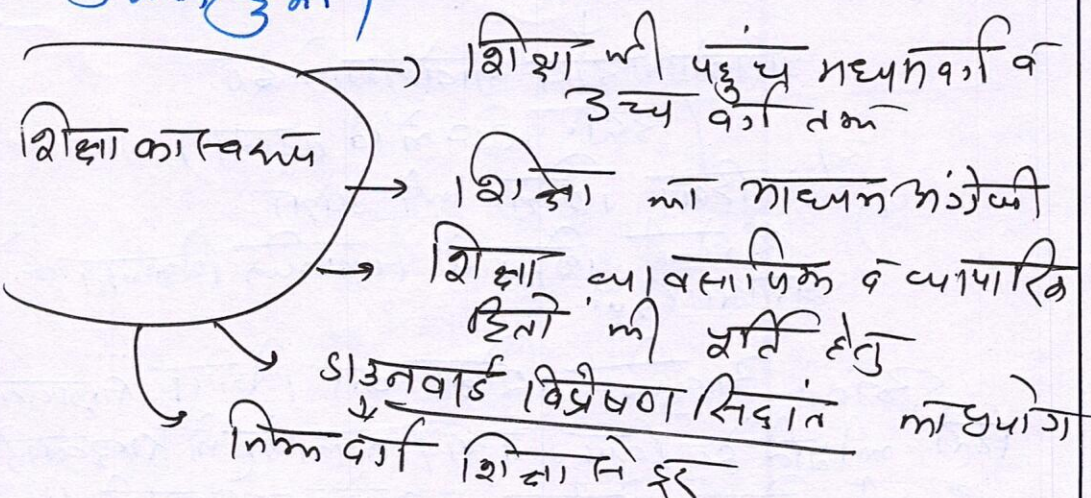 शिक्षा का स्वरूप
→ शिक्षा की पहुंच मध्यमवर्ग व
उच्च वर्ग तक
→ शिक्षा का माध्यम अंग्रेजी
→ शिक्षा व्यावसायिक व व्यापारिक
हितों की पूर्ति हेतु
डाउनवार्ड विप्रेषण सिद्धांत का प्रयोग
निम्न वर्ग शिक्षा से दूर